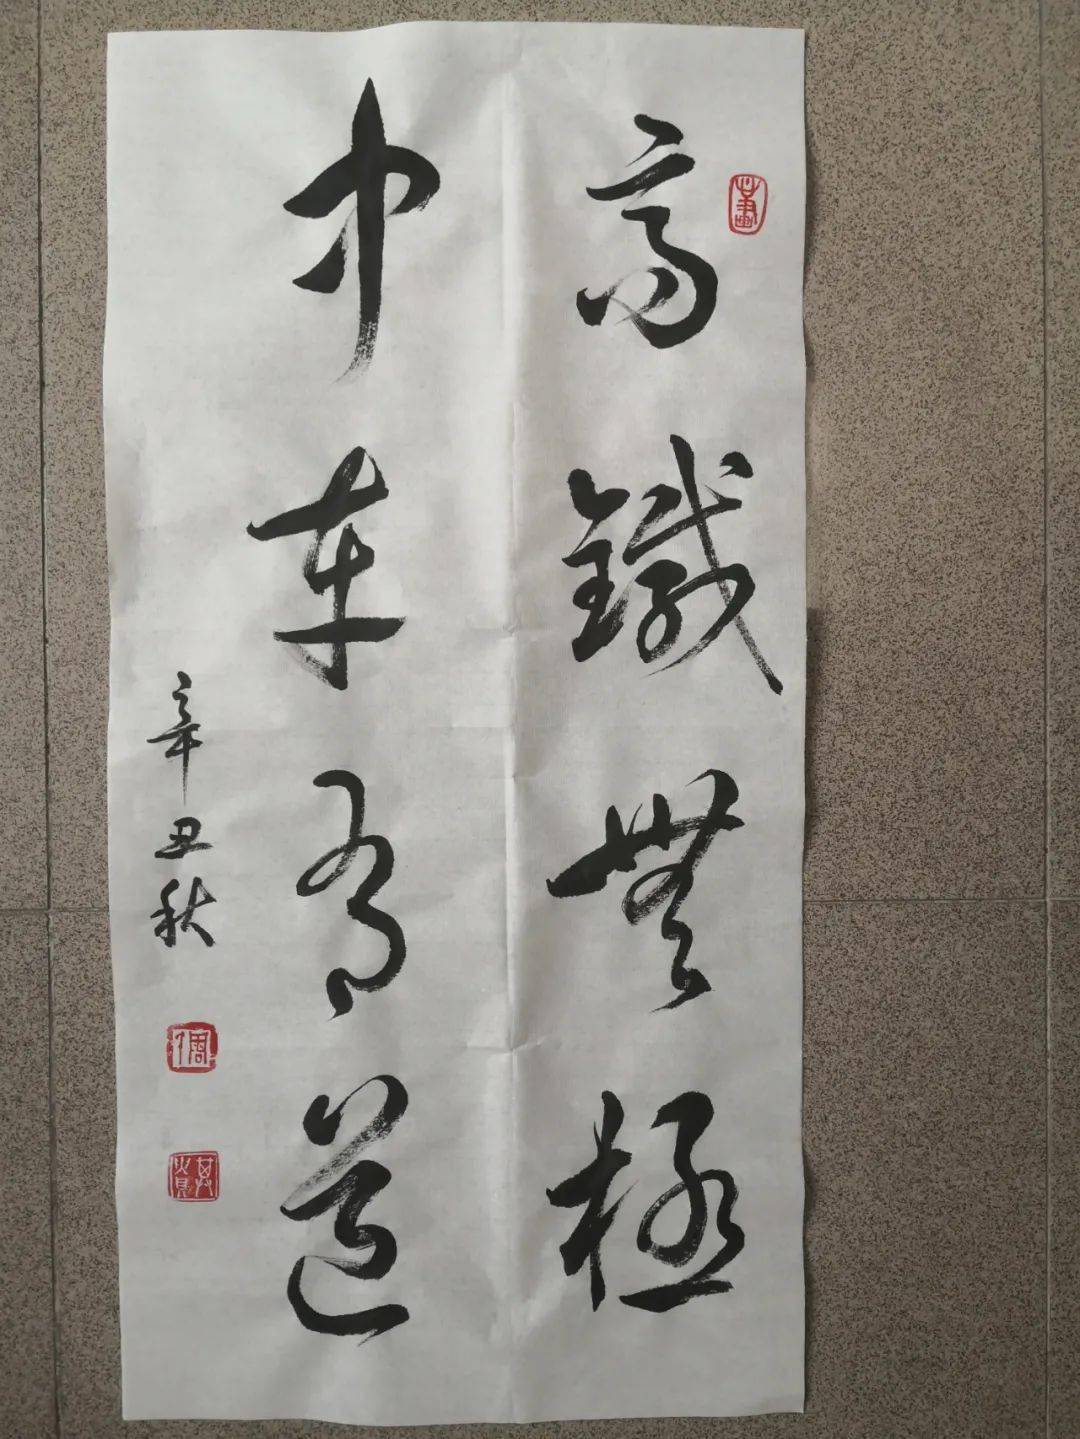 高鐵無極
中車有道
辛丑秋